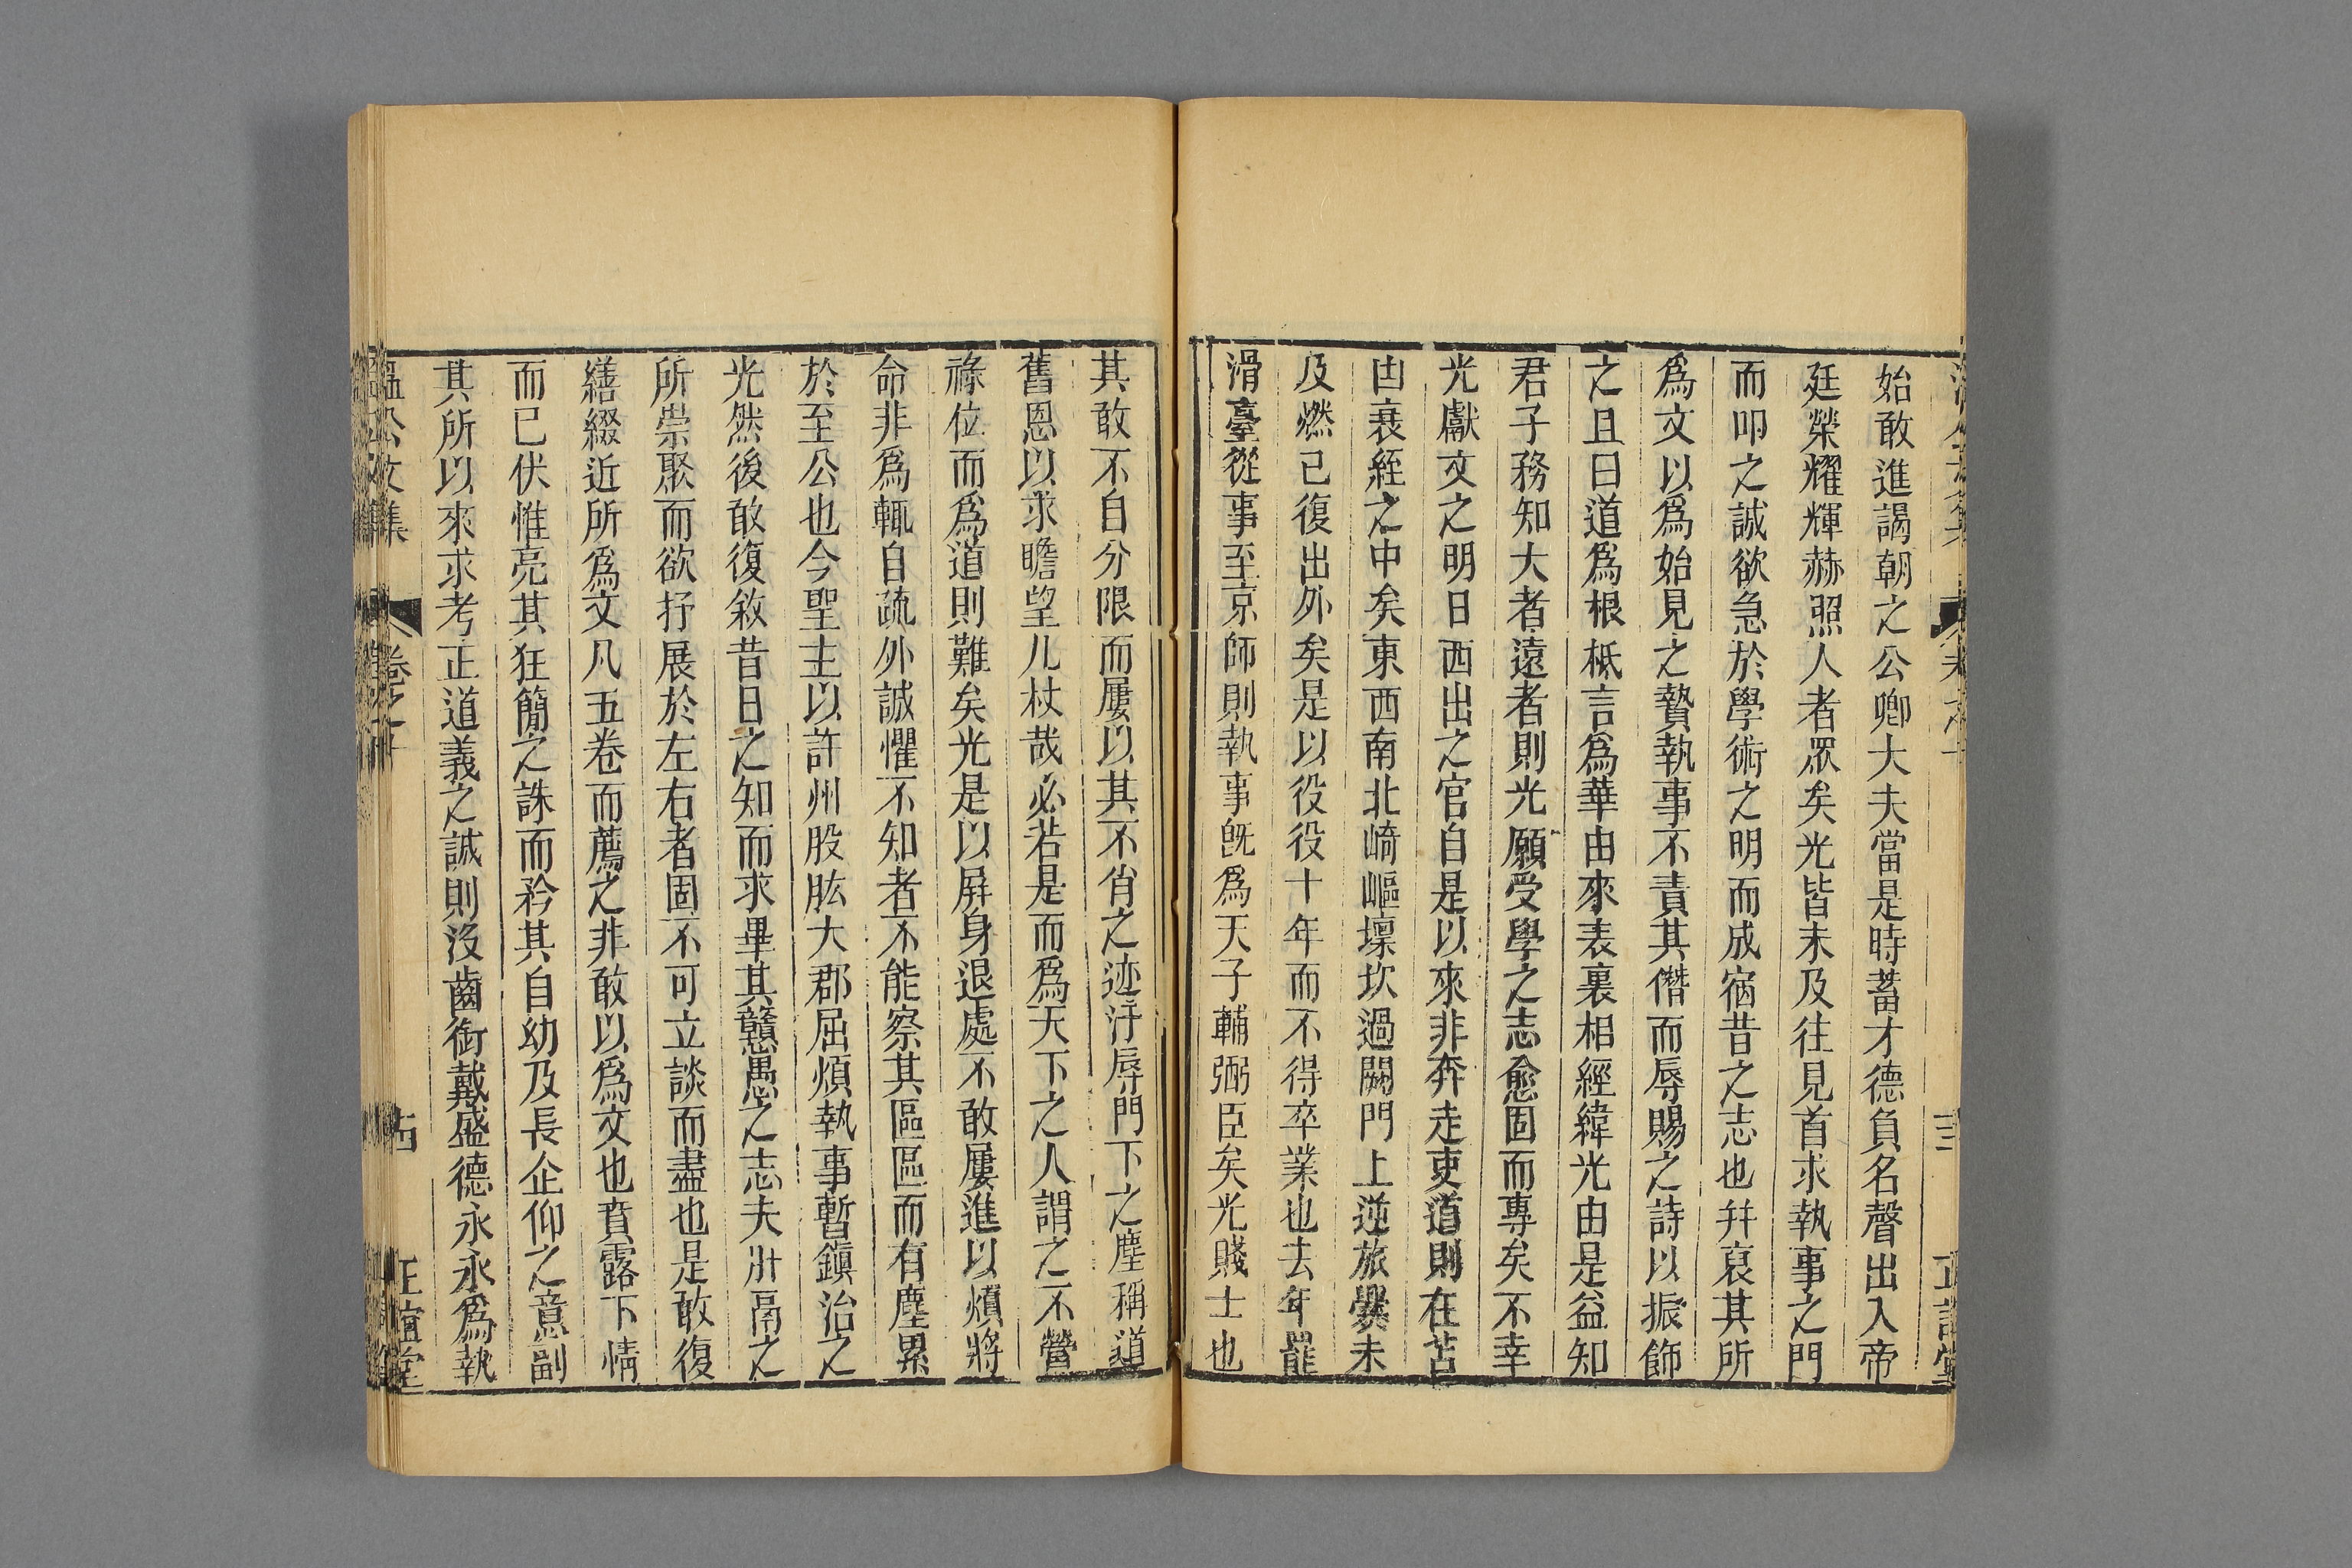 始敢進謁朝之公卿大夫當是時蓄才德負名聲出入帝
廷榮耀輝赫照人者眾矣光皆未及往見首求執事之門
而叩之誠欲急於學術之明而成宿昔之志也幷裒其所
爲文以爲始見之贄執事不責其僭而辱賜之詩以振飾
之且曰道爲根柢言爲華由來表裏相經緯光由是益知
君子務知大者遠者則光願受學之志愈固而專矣不幸
光獻文之明日西出之官自是以來非奔走吏道則在苫
凷衰絰之中矣東西南北崎嶇壈坎過闕門上逆旅爨未
及燃已復出外矣是以役役十年而不得卒業也去年罷
滑臺從事至京師則執事旣爲天子輔弼臣矣光賤士也
其敢不自分限而屢以其不肖之迹汙辱門下之塵稱道
舊恩以求瞻望几杖哉必若是而爲天下之人謂之不營
祿位而爲道則難矣光是以屏身退處不敢屢進以煩將
命非爲輒自疏外誠懼不知者不能察其區區而有塵累
於至公也今聖主以許州股肱大郡屈煩執事暫鎭治之
光然後敢復敘昔日之知而求畢其戇愚之志夫卝鬲之
所崇聚而欲抒展於左右者固不可立談而盡也是敢復
繕綴近所爲文凡五卷而薦之非敢以爲文也賁露下情
而已伏惟亮其狂簡之誅而矜其自幼及長企仰之意副
其所以來求考正道義之誠則沒齒銜戴盛德永永爲執
溫公文集
卷之十
古
正誼堂